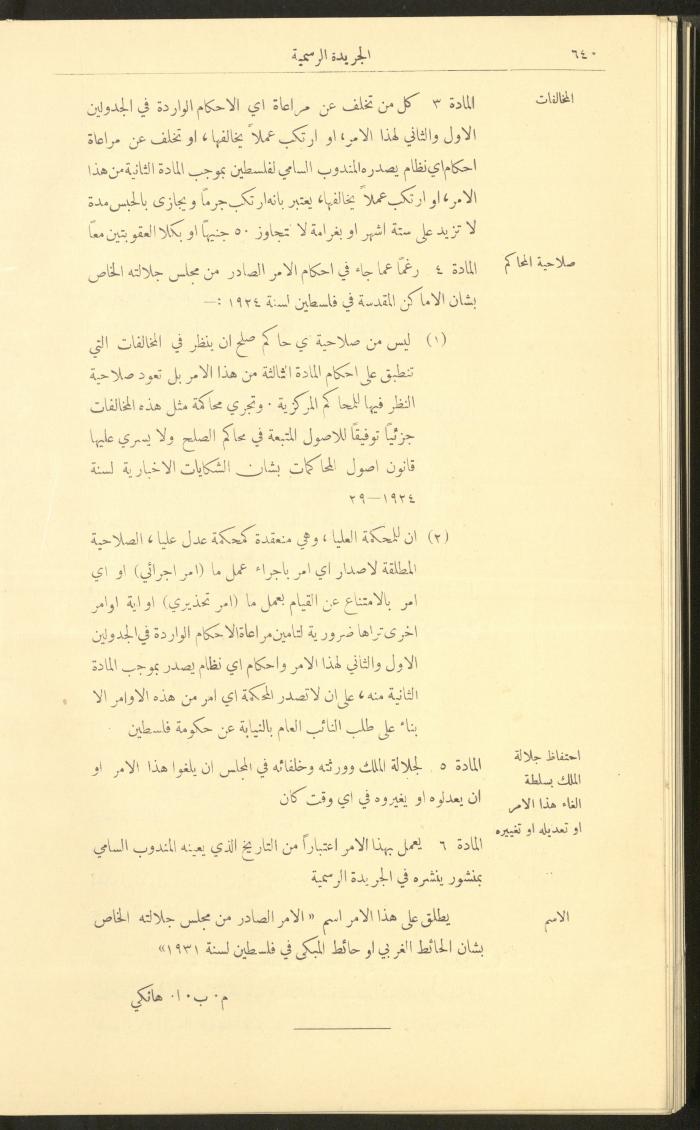 ٦٤٠
الجريدة الرسمية
المخالفات
المادة ٣ كل من تخلف عن مراعاة اي الاحكام الواردة في الجدولين
الاول والثاني لهذا الامر، او ارتكب عملاً يخالفها، او تخلف عن مراعاة
احكام اي نظام يصدره المندوب السامي لفلسطين بموجب المادة الثانية من هذا
الامر، او ارتكب عملاً يخالفها، يعتبر بانه ارتكب جرمًا ويجازى بالحبس مدة
لا تزيد على ستة اشهر او بغرامة لا تتجاوز ٥٠ جنيهًا او بكلا العقوبتين معًا
صلاحية المحاكم
المادة ٤ رغمًا عما جاء في احكام الامر الصادر من مجلس جلالته الخاص
بشان الاماكن المقدسة في فلسطين لسنة ١٩٢٤ :—
(١) ليس من صلاحية ي حاكم صلح ان ينظر في المخالفات التي
تنطبق على احكام المادة الثالثة من هذا الامر بل تعود صلاحية
النظر فيها للمحاكم المركزية . وتجري محاكمة مثل هذه المخالفات
جزئيًا توفيقًا للاصول المتبعة في محاكم الصلح ولا يسري عليها
قانون اصول المحاكمات بشان الشكايات الاخبارية لسنة
١٩٢٤—٢٩
(٢) ان للمحكمة العليا، وهي منعقدة كمحكمة عدل عليا، الصلاحية
المطلقة لاصدار اي امر باجراء عمل ما (امر اجرائي) او اي
امر بالامتناع عن القيام بعمل ما (امر تحذيري) او اية اوامر
اخرى تراها ضرورية لتامين مراعاة الاحكام الواردة في الجدولين
الاول والثاني لهذا الامر واحكام اي نظام يصدر بموجب المادة
الثانية منه، على ان لا تصدر المحكمة اي امر من هذه الاوامر الا
بناء على طلب النائب العام بالنيابة عن حكومة فلسطين
احتفاظ جلالة
الملك بسلطة
الغاء هذا الامر
او تعديله او تغييره
المادة ٥ لجلالة الملك وورثته وخلفائه في المجلس ان يلغوا هذا الامر او
ان يعدلوه او يغيروه في اي وقت كان
المادة ٦ يعمل بهذا الامر اعتباراً من التاريخ الذي يعينه المندوب السامي
بمنشور ينشره في الجريدة الرسمية
الاسم
يطلق على هذا الامر اسم « الامر الصادر من مجلس جلالته الخاص
بشان الحائط الغربي او حائط المبكى في فلسطين لسنة ١٩٣١»
م . ب . ا . هانكي